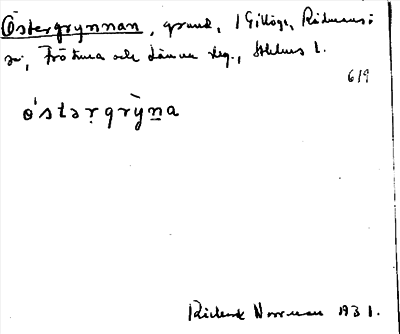 Östergrynnan, grund, i Gillöge, Rådmansö
sn, Frötuna och Länna skg., Sthlms l.
6/9
ö́stər̥grỳn̲a
Rickard Norrman 1931.